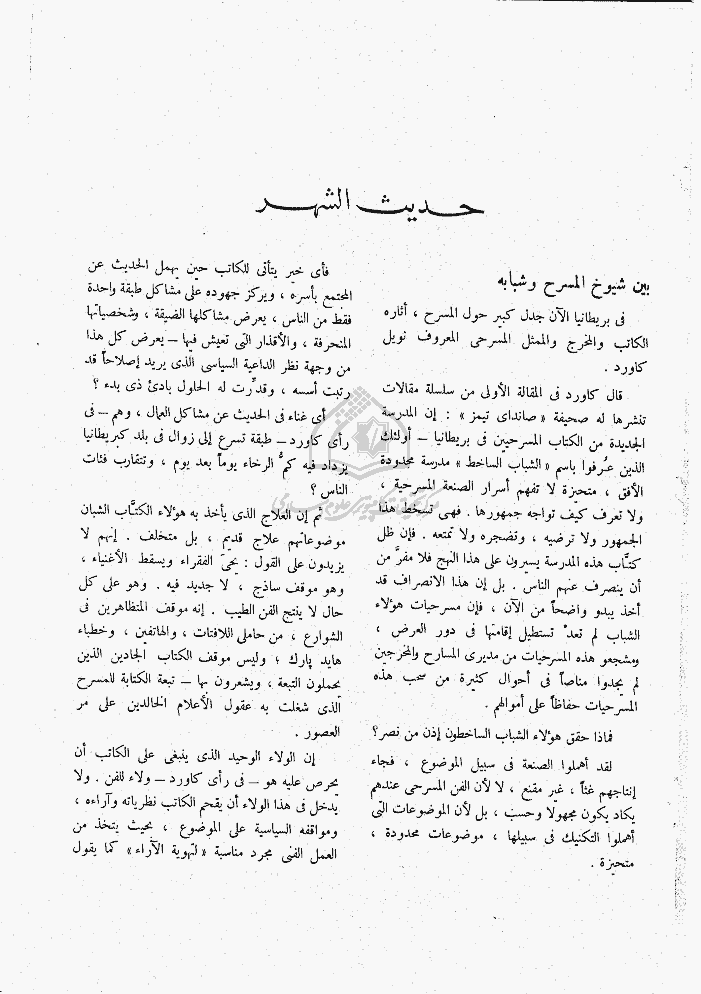 حديث الشهر
بين شيوخ المسرح وشبابه
فى بريطانيا الآن جدل كبير حول المسرح ، أثاره
الكاتب والمخرج والممثل المسرحى المعروف نويل
كاورد .
قال كاورد فى المقالة الأولى من سلسلة مقالات
تنشرها له صحيفة « صانداى تيمز » : إن المدرسة
الجديدة من الكتاب المسرحيين فى بريطانيا – أولئك
الذين عُرفوا باسم « الشباب الساخط » مدرسة محدودة
الأفق ، متحيزة لا تفهم أسرار الصنعة المسرحية ،
ولا تعرف كيف تواجه جمهورها . فهى تسخط هذا
الجمهور ولا ترضيه ، وتضجره ولا تمتعه . فإن ظل
كتَّاب هذه المدرسة يسيرون على هذا النهج فلا مفرَّ من
أن ينصرف عنهم الناس . بل إن هذا الانصراف قد
أخذ يبدو واضحاً من الآن ، فإن مسرحيات هؤلاء
الشباب لم تعدْ تستطيل إقامتها فى دور العرض ،
ومشجعو هذه المسرحيات من مديرى المسارح والمخرجين
لم يجدوا مناصاً فى أحوال كثيرة من سحب هذه
المسرحيات حفاظاً على أموالهم .
فماذا حقق هؤلاء الشباب الساخطون إذن من نصر؟
لقد أهملوا الصنعة فى سبيل الموضوع ، فجاء
إنتاجهم غثًّا ، غير مقنع ، لا لأن الفن المسرحى عندهم
يكاد يكون مجهولا وحسب ، بل لأن الموضوعات التى
أهملوا التكنيك فى سبيلها ، موضوعات محدودة ،
متحيزة .
فأى خير يتأتى للكاتب حين يهمل الحديث عن
المجتمع بأسره ، ويركز جهوده على مشاكل طبقة واحدة
فقط من الناس ، يعرض مشاكلها الضيقة ، وشخصياتها
المنحرفة ، والأقذار التى تعيش فيها – يعرض كل هذا
من وجهة نظر الداعية السياسى الذى يريد إصلاحاً قد
رتبت أسسه ، وقدِّرت له الحلول بادئ ذى بدء ؟
أى غناء فى الحديث عن مشاكل العمال ، وهم – فى
رأى كاورد – طبقة تسرع إلى زوال فى بلد كبريطانيا
يزداد فيه كمُّ الرخاء يوماً بعد يوم ، وتتقارب فئات
الناس ؟
ثم إن العلاج الذى يأخذ به هؤلاء الكتَّاب الشبان
موضوعاتهم علاج قديم ، بل متخلف . إنهم لا
يزيدون على القول : يحيىَ الفقراء ويسقط الأغنياء ،
وهو موقف ساذج ، لا جديد فيه . وهو على كل
حال لا ينتج الفن الطيب . إنه موقف المتظاهرين فى
الشوارع ، من حاملى اللافتات ، والهاتفين ، وخطباء
هايد پارك ؛ وليس موقف الكتاب الجادين الذين
يحملون التبعة ، ويشعرون بها – تبعة الكتابة للمسرح
الذى شغلت به عقول الأعلام الخالدين على مر
العصور .
إن الولاء الوحيد الذى ينبغى على الكاتب أن
يحرص عليه هو – فى رأى كاورد – ولاء للفن . ولا
يدخل فى هذا الولاء أن يقحم الكاتب نظرياته وآراءه ،
ومواقفه السياسية على الموضوع ، بحيث يتخذ من
العمل الفنى مجرد مناسبة « لتهوية الآراء » كما يقول